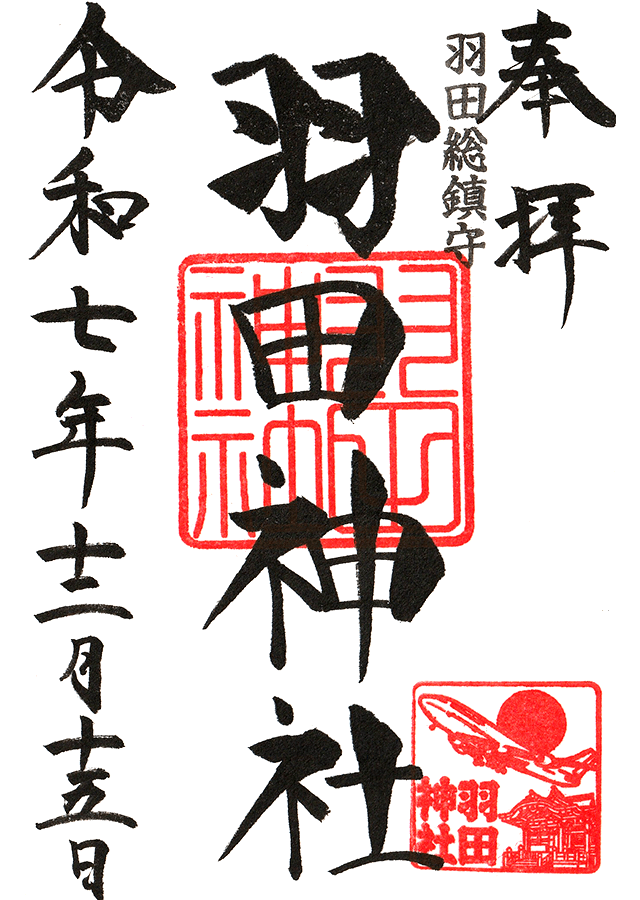 奉拝
羽田総鎮守
羽田神社
令和七年十二月十五日
羽田
神社